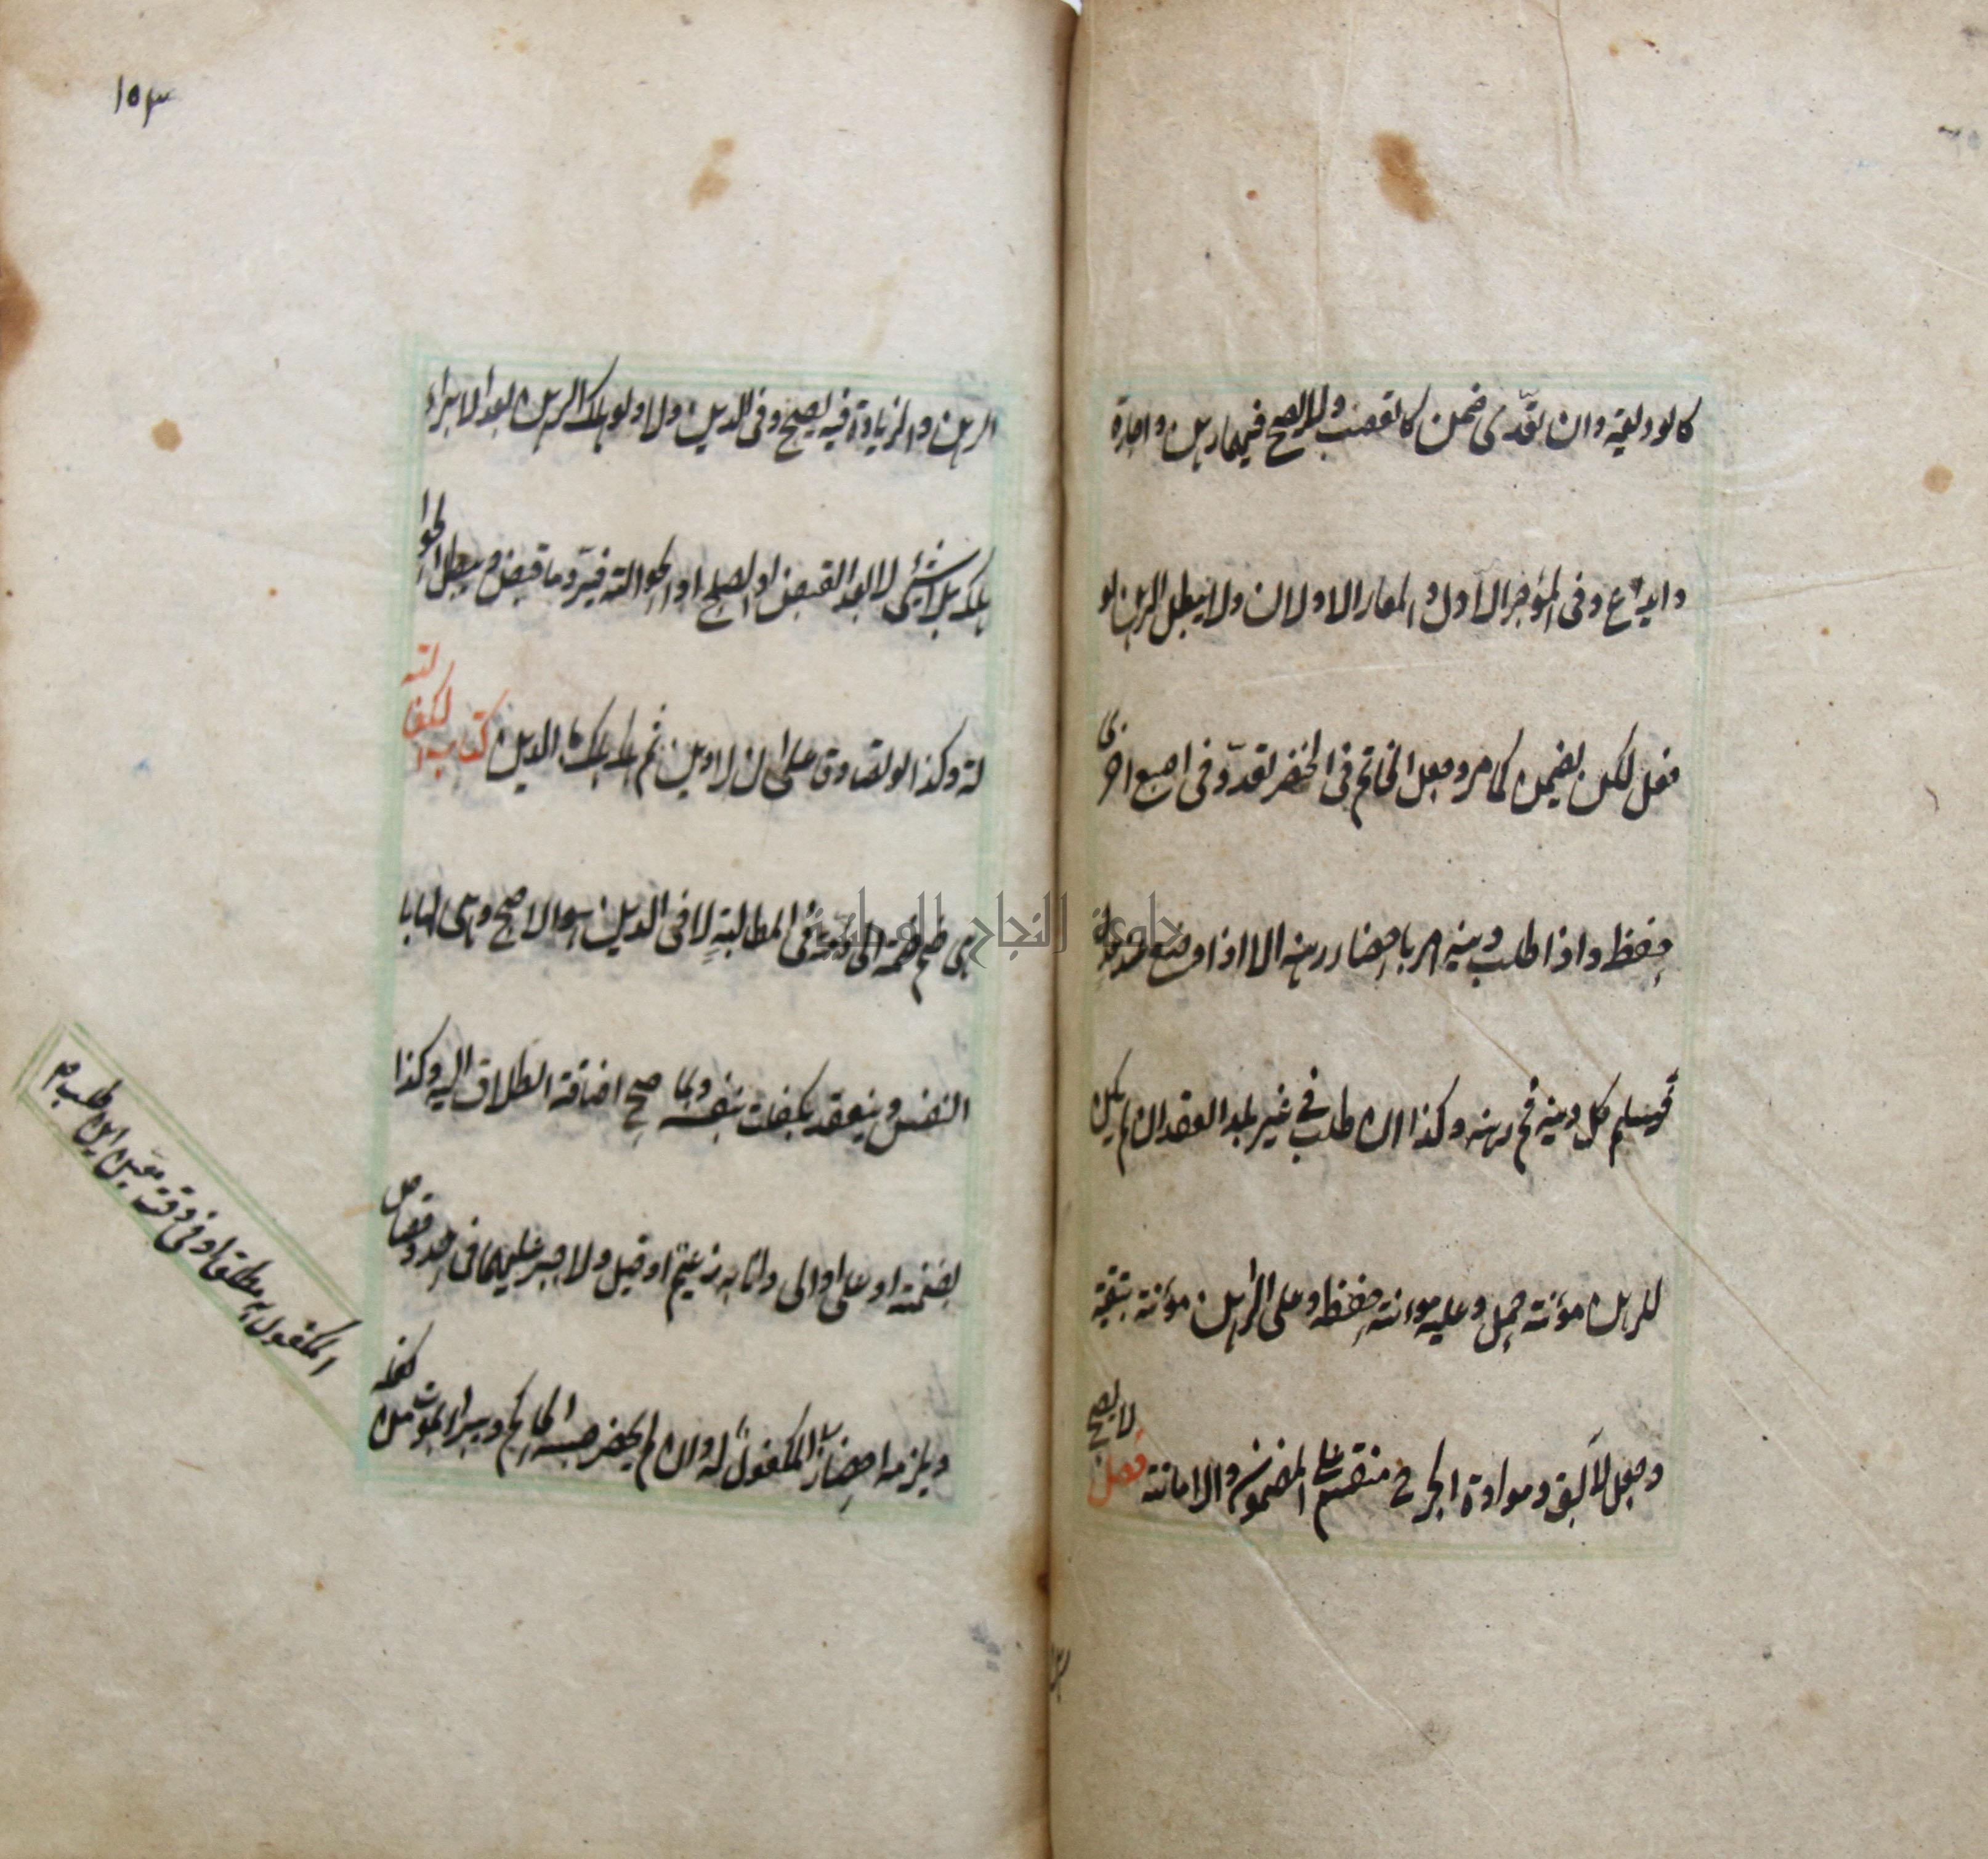 كالوديعة وان تعدى ضمن كالغصب ولا يصح فيهما رهن واجارة
وايداع وفى المؤجر الاول والمعار الاولان ولا يبطل الرهن لو
فعل لكن يضمن كما مر وجعل الخاتم فى الخنصر تعد وفى اصبع اخرى
حفظ واذا طلب دينه امر باحضار رهنه الا اذا وضع عند عدل
فيسلم كل دينه ثم رهنه وكذا ان طلب فى غير بلد العقد ان لم يكن
للرهن مؤنة حمل وعليه مؤنة حفظه وعلى الراهن مؤنة تبقيته
وجعل الآبق ومداواة الجرح منقسم على المضمون والامانة فصل لا يصح
١٥٣
الرهن والزيادة فيه يصح وفى الدين لا ولو هلك الرهن بعد الابراء
هلك بلا شئ لا بعد القبض او الصلح او الحوالة فيرد ما قبض ويبطل الحوا
لة وكذا لو تصادقا على ان لا دين ثم هلك هلك بالدين كتاب الكفالة
هى ضم ذمة الى ذمة فى المطالبة لا فى الدين هو الاصح وهى اما با
النفس وينعقد بكفلت بنفسه وبما صح اضافة الطلاق اليه وكذا
بضمنته او على او الى وانا به زعيم او قبيل ولا جبر عليهما فى حد وقصاص
ويلزمه احضار المكفول له وان لم يحضر حبسه الحاكم ويبرأ بموت من كفله
المكفول به مطلقا او فى وقت معين ان طلب م